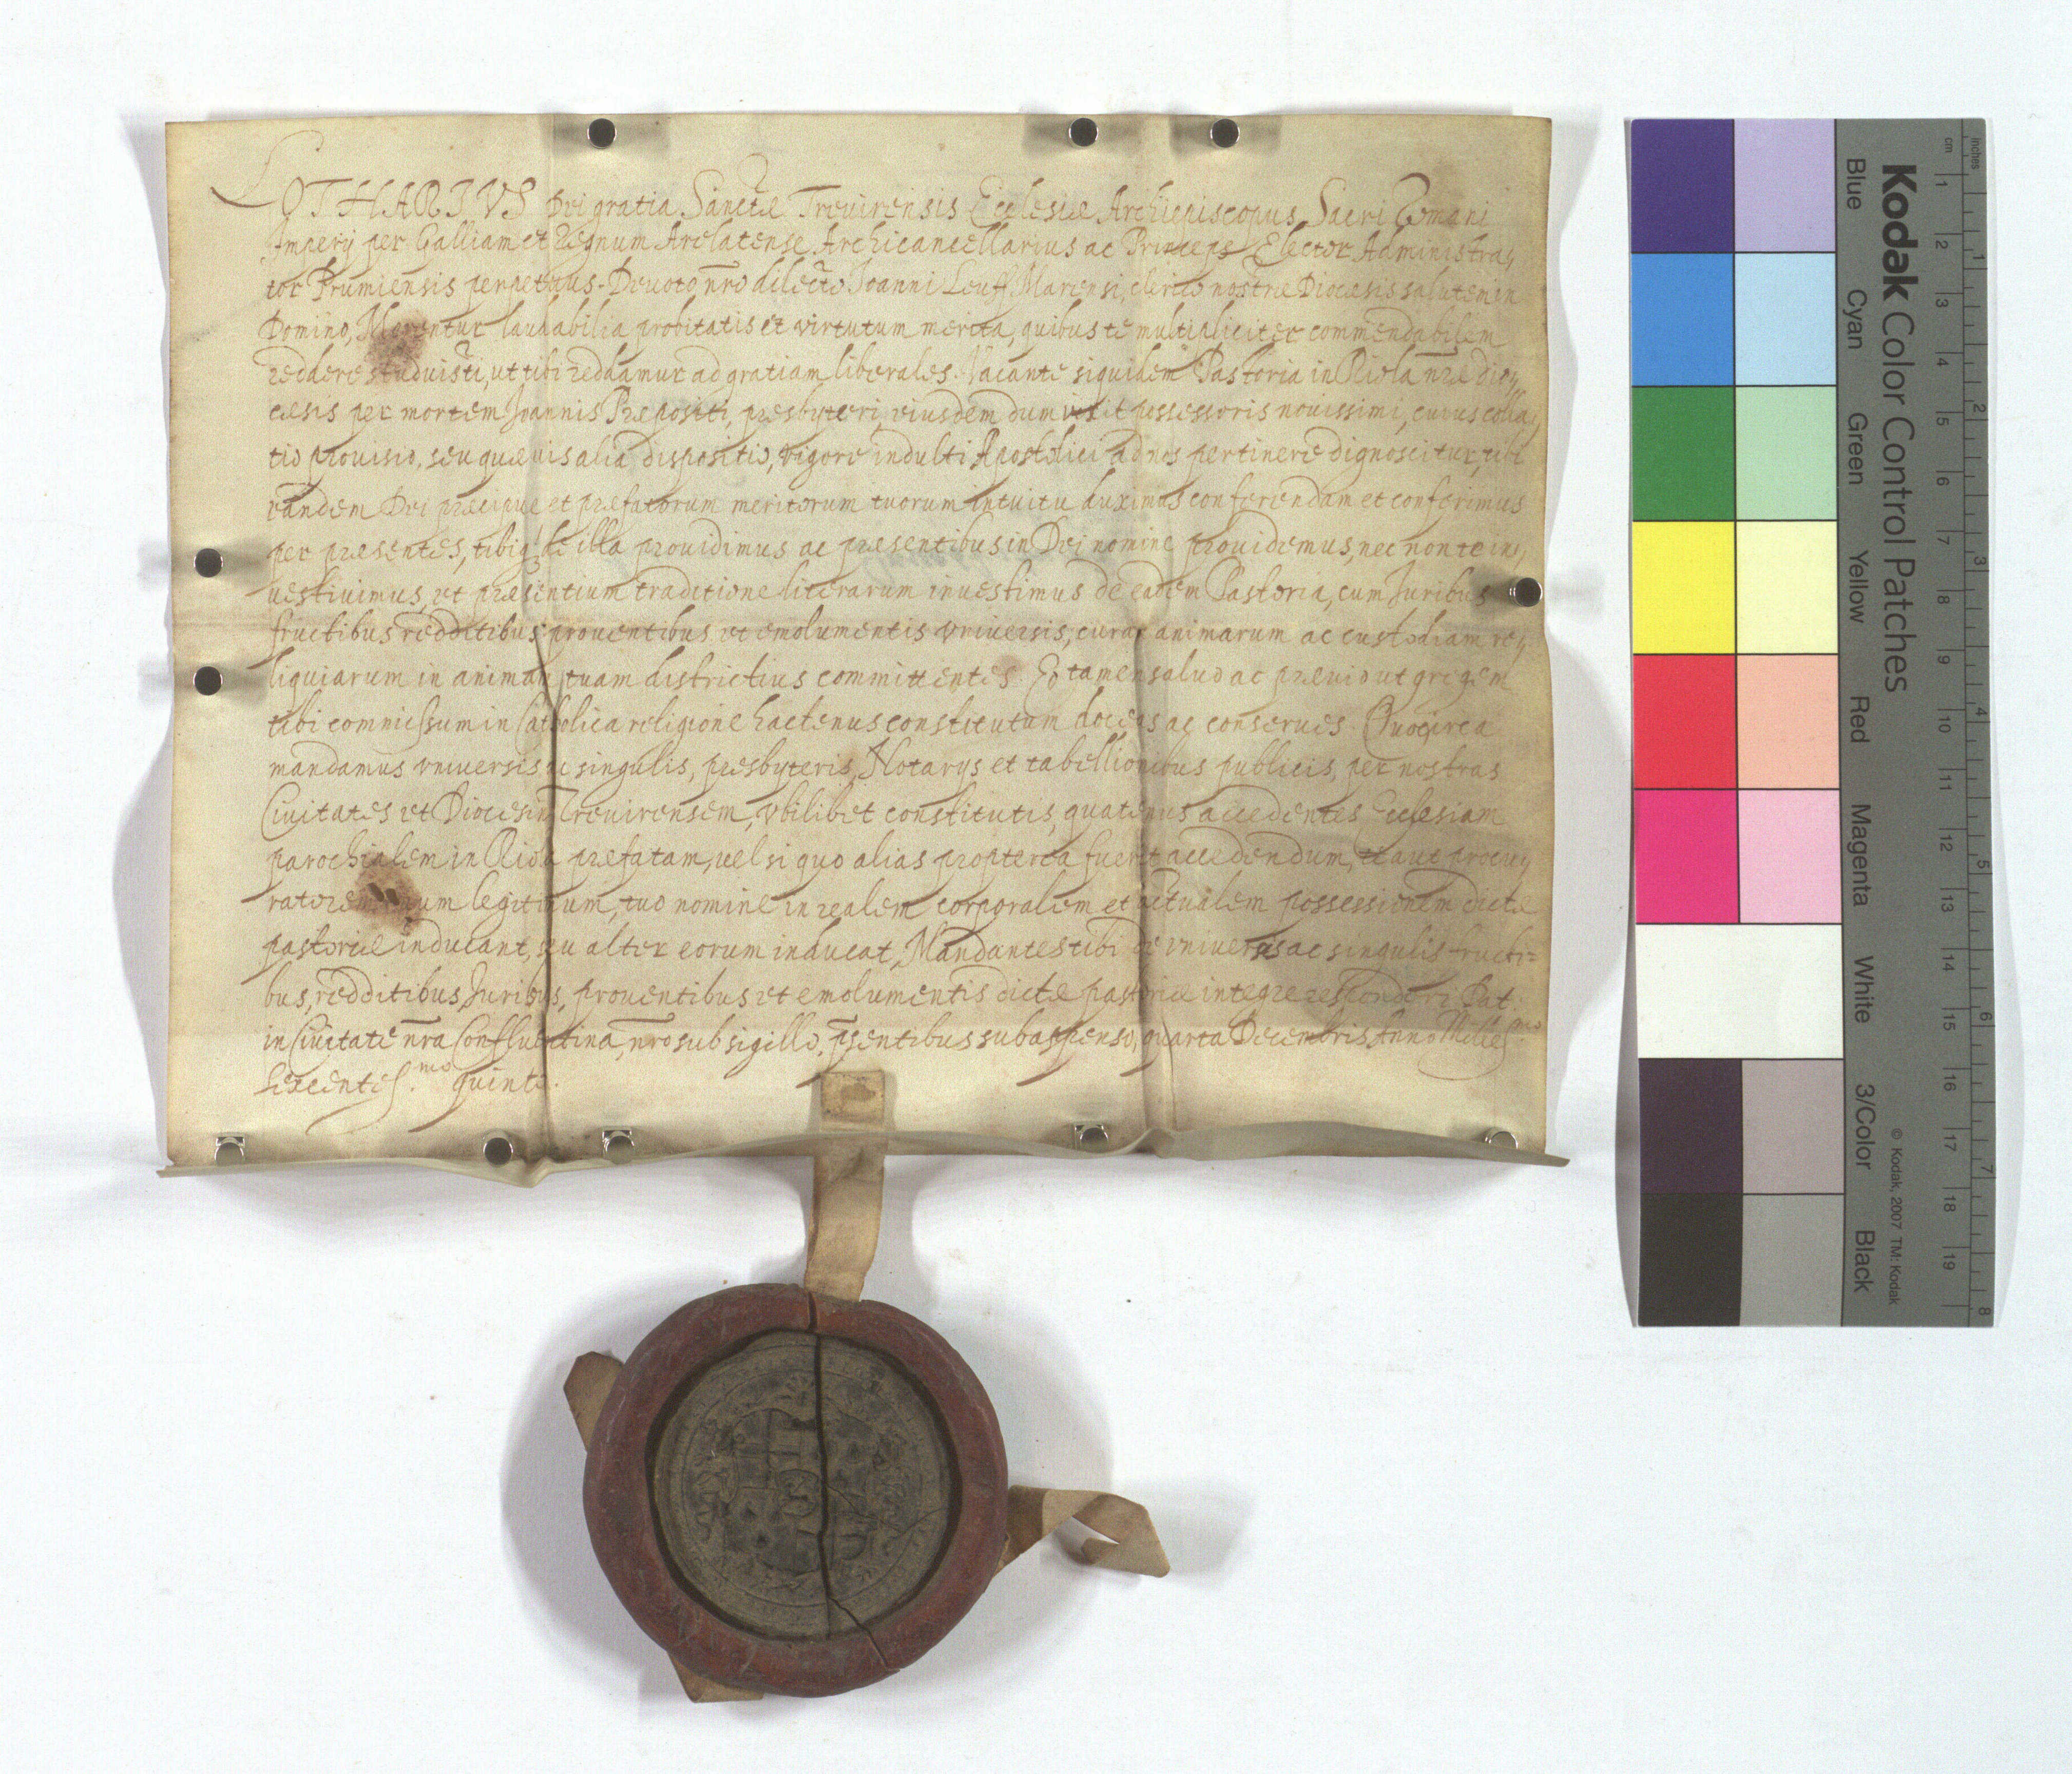 LOTHARIVS Dei gratia Sanctæ Treuirensis Ecclesiæ Archiepiscopus Sacri Romani
Imperij per Galliam et Regnum Arelatense Archicancellarius ac Princeps Elector Administra,,
tor Prumiensis perpetuus. Deuoto nr̄o dilecto Joanni Leuff Marensi, clerico nostræ Diocæsis salutem in
Domino, Merentur laudabilia probitatis et virtutum merita, quibus te multipliciter commendabilem
reddere studuisti, ut tibi reddamur ad gratiam liberales. Vacante siquidem Pastoria in Riola nr̄æ dio,,
cæsis per mortem Joannis Præpositi, presbyteri, eiusdem dum vixit possessoris nouissimi, cuius colla,,
tio prouisio, seu quæuis alia dispositio, vigore indulti Apostolici ad nos pertinere dignoscitur, tibi
eandem Dei præcipue et præfatorum meritorum tuorum intuitu duximus conferendam et conferimus
per præsentes, tibiq; de illa prouidimus ac præsentibus in Dei nomine prouidemus, nec non te in,,
uestiuimus, et præsentium traditione literarum inuestimus de eadem Pastoria, cum Juribus
fructibus redditibus prouentibus et emolumentis vniuersis, curam animarum ac custodiam re,,
liquiarum in animam tuam districtius committentes. Eo tamen saluo ac præuio ut gregem
tibi commissum in Catholica religione hactenus constitutum doceas ac conserues. Quocirca
mandamus vniuersis ac singulis, presbyteris, Notarijs et tabellionibus publicis, per nostras
Ciuitates et Diocesin Treuirensem, vbilibet constitutis, quatenus accedentes Ecclesiam
parochialem in Riola præfatam, uel si quo alias propterea fuerit accedendum, te aut procu,,
ratorem tuum legitimum, tuo nomine in realem corporalem et actualem possessionem dictæ
pastoriæ inducant, seu alter eorum inducat, Mandantes tibi de vniuersis ac singulis fructi=
bus, redditibus, Juribus, prouentibus et emolumentis dictæ pastoriæ integre responderi. Dat.
in Ciuitate nr̄a Confluentina, nr̄o sub sigillo, p̄sentibus subappenso, quarta Decembris Anno Milles.mo
sexcentes.mo quinto.
Kodak Color Control Patches
Blue Cyan Green Yellow Red Magenta White 3/Color Black
© Kodak, 2007 TM: Kodak
inches 1 2 3 4 5 6 7 8
cm 1 2 3 4 5 6 7 8 9 10 11 12 13 14 15 16 17 18 19